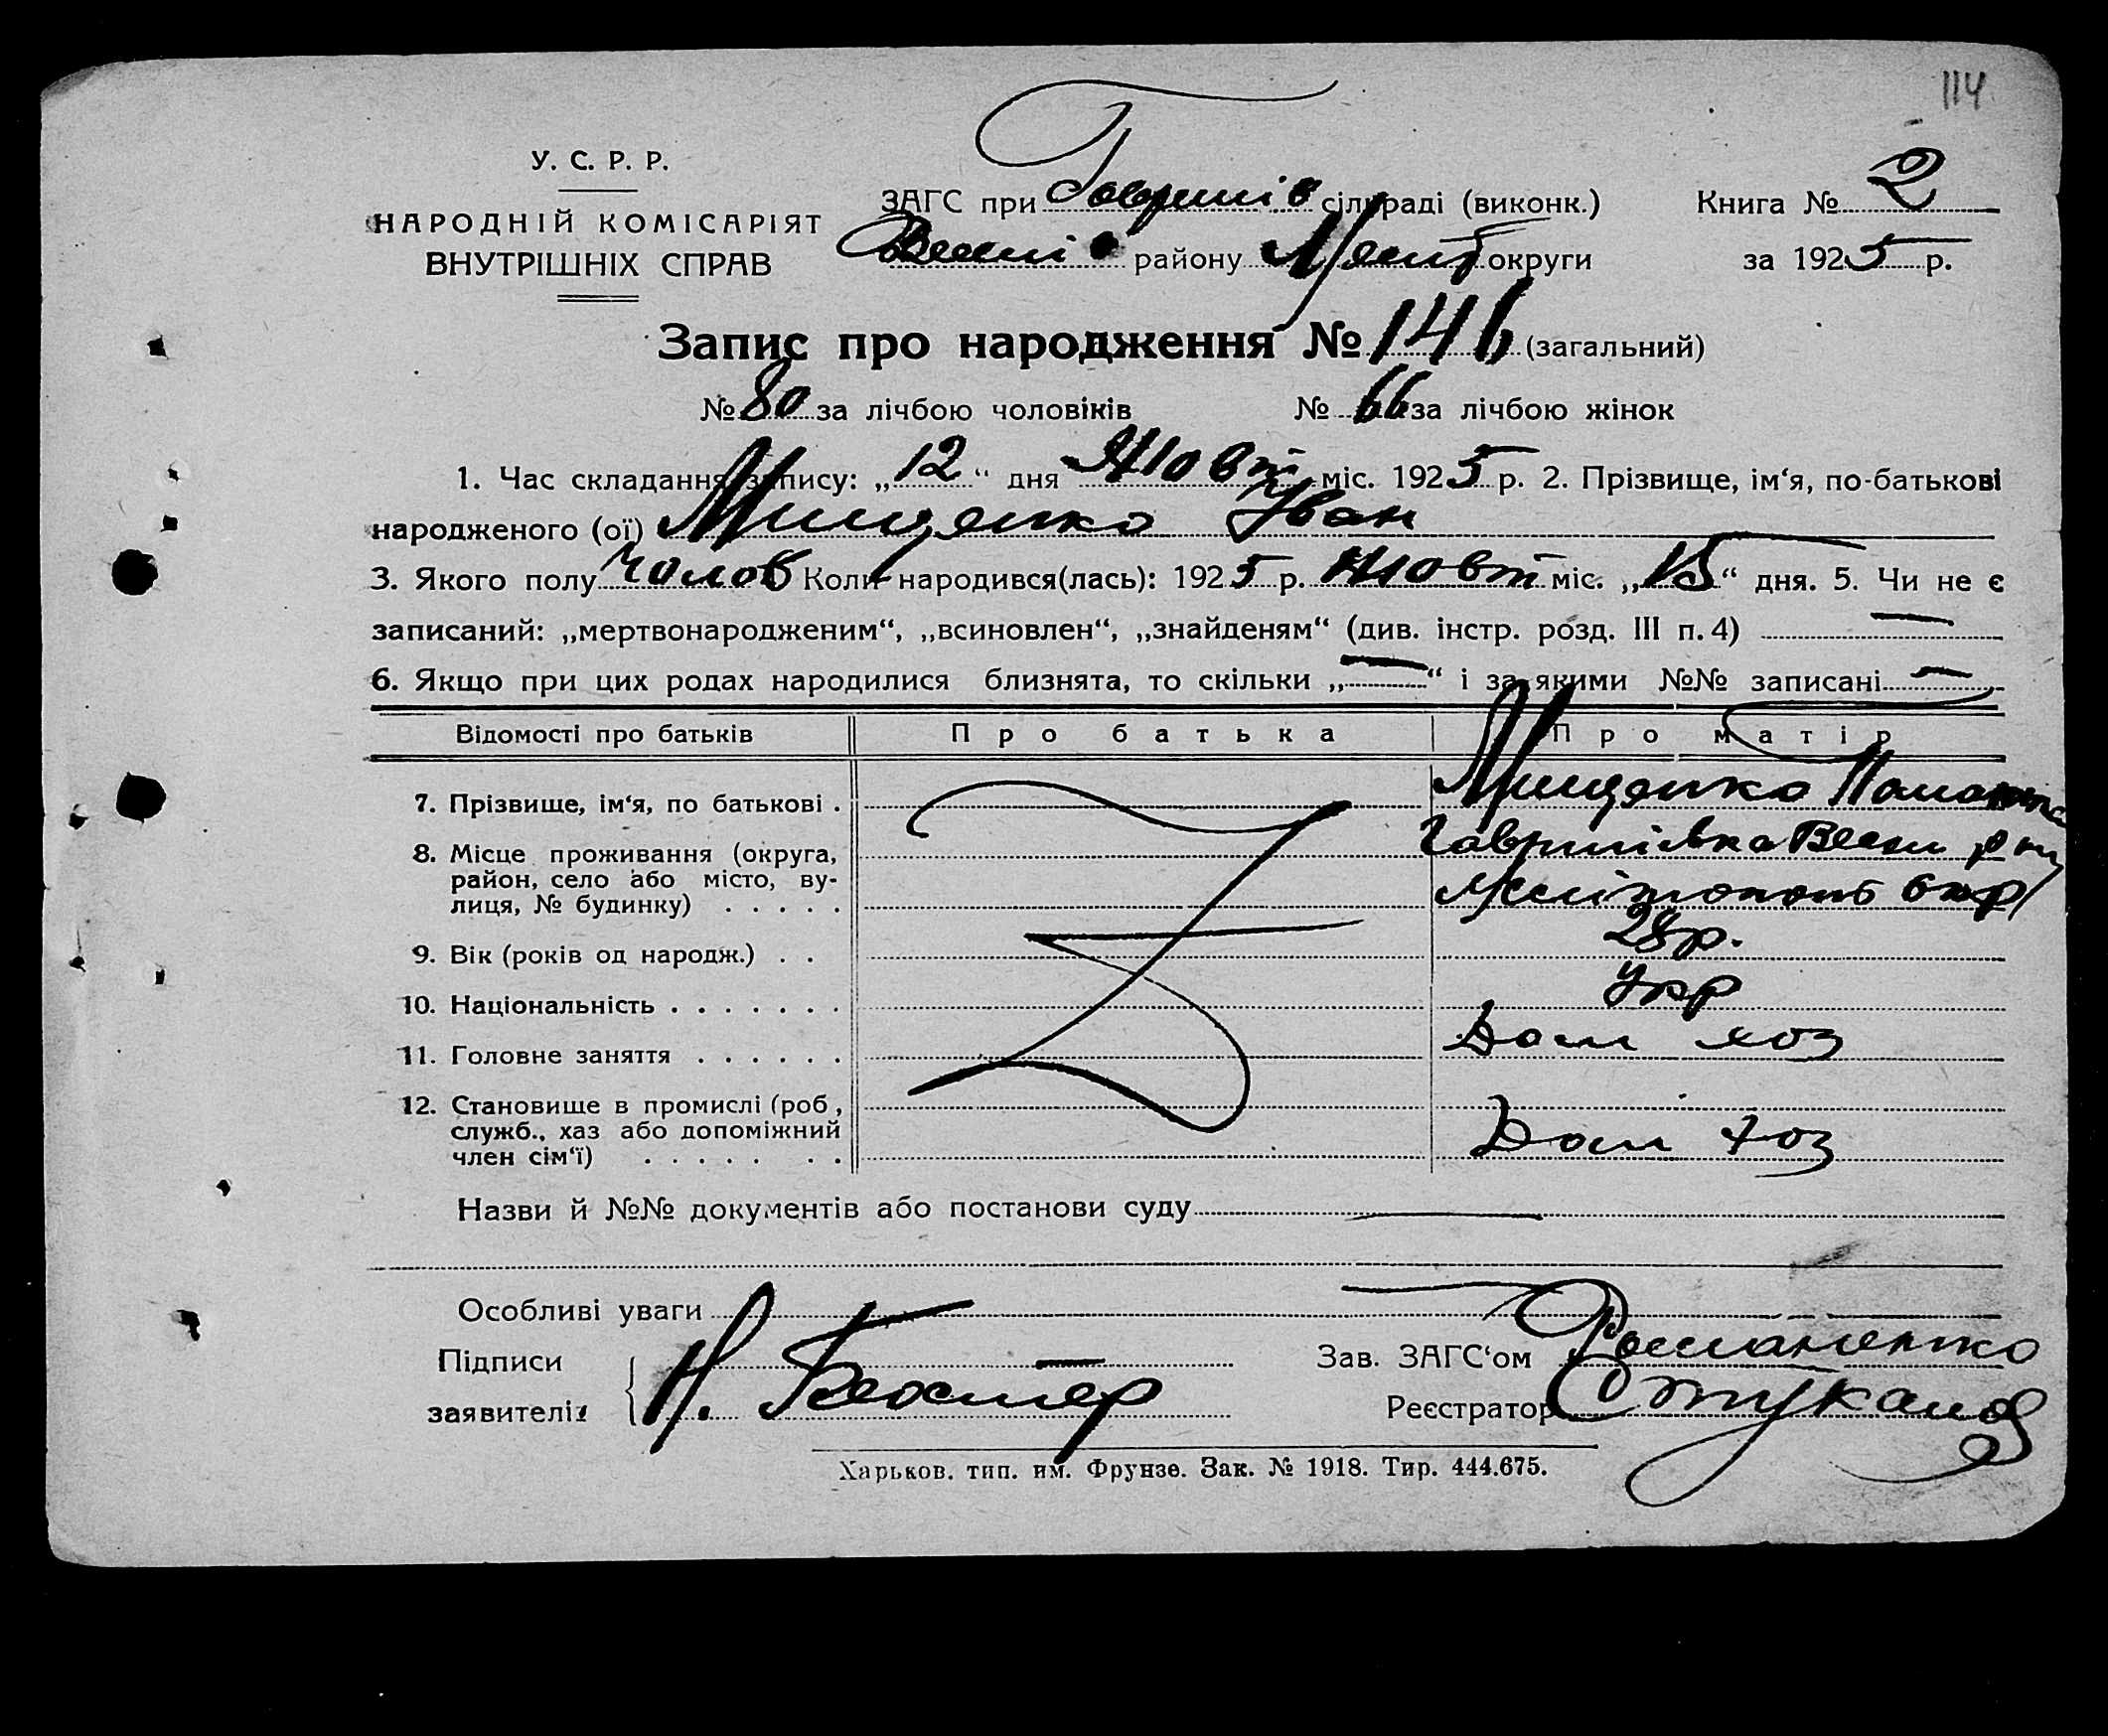 114
У. С. Р. Р.
НАРОДНІЙ КОМІСАРІЯТ
ВНУТРІШНІХ СПРАВ
ЗАГС при Гаврилів сільраді (виконк.)
району Меліт округи
Книга № 2
за 1925 р.
Запис про народження № 146 (загальний)
№ 80 за лічбою чоловіків № 66 за лічбою жінок
1. Час складання запису: „12“ дня Жовт міс. 1925 р. 2. Прізвище, ім‘я, по-батькові
народженого (ої) Мищенко Іван
3. Якого полу чолов Коли народився(лась): 1925 р. жовт міс. „15“ дня. 5. Чи не є
записаний: „мертвонародженим“, „всиновлен“, „знайденям“ (див. інстр. розд. III п. 4) —
6. Якщо при цих родах народилися близнята, то скільки „—“ і за якими №№ записані —
Відомості про батьків Про батька Про матір
7. Прізвище, ім‘я, по батькові . Мищенко
8. Місце проживання (округа, Гаврилівка
район, село або місто, ву-
лиця, № будинку) . . . . . Мелітополь окр
9. Вік (років од народж.) . . 28 р.
10. Національність . . . . . . . Укр
11. Головне заняття . . . . . . Дом хоз
12. Становище в промислі (роб,
служб., хаз або допоміжний
член сім‘ї) . . . . . . . Дом хоз
Назви й №№ документів або постанови суду —
Особливі уваги —
Підписи — Зав. ЗАГС‘ом Романенко
заявителів Н. Реєстратор Стукалов
Харьков. тип. им. Фрунзе. Зак. № 1918. Тир. 444.675.